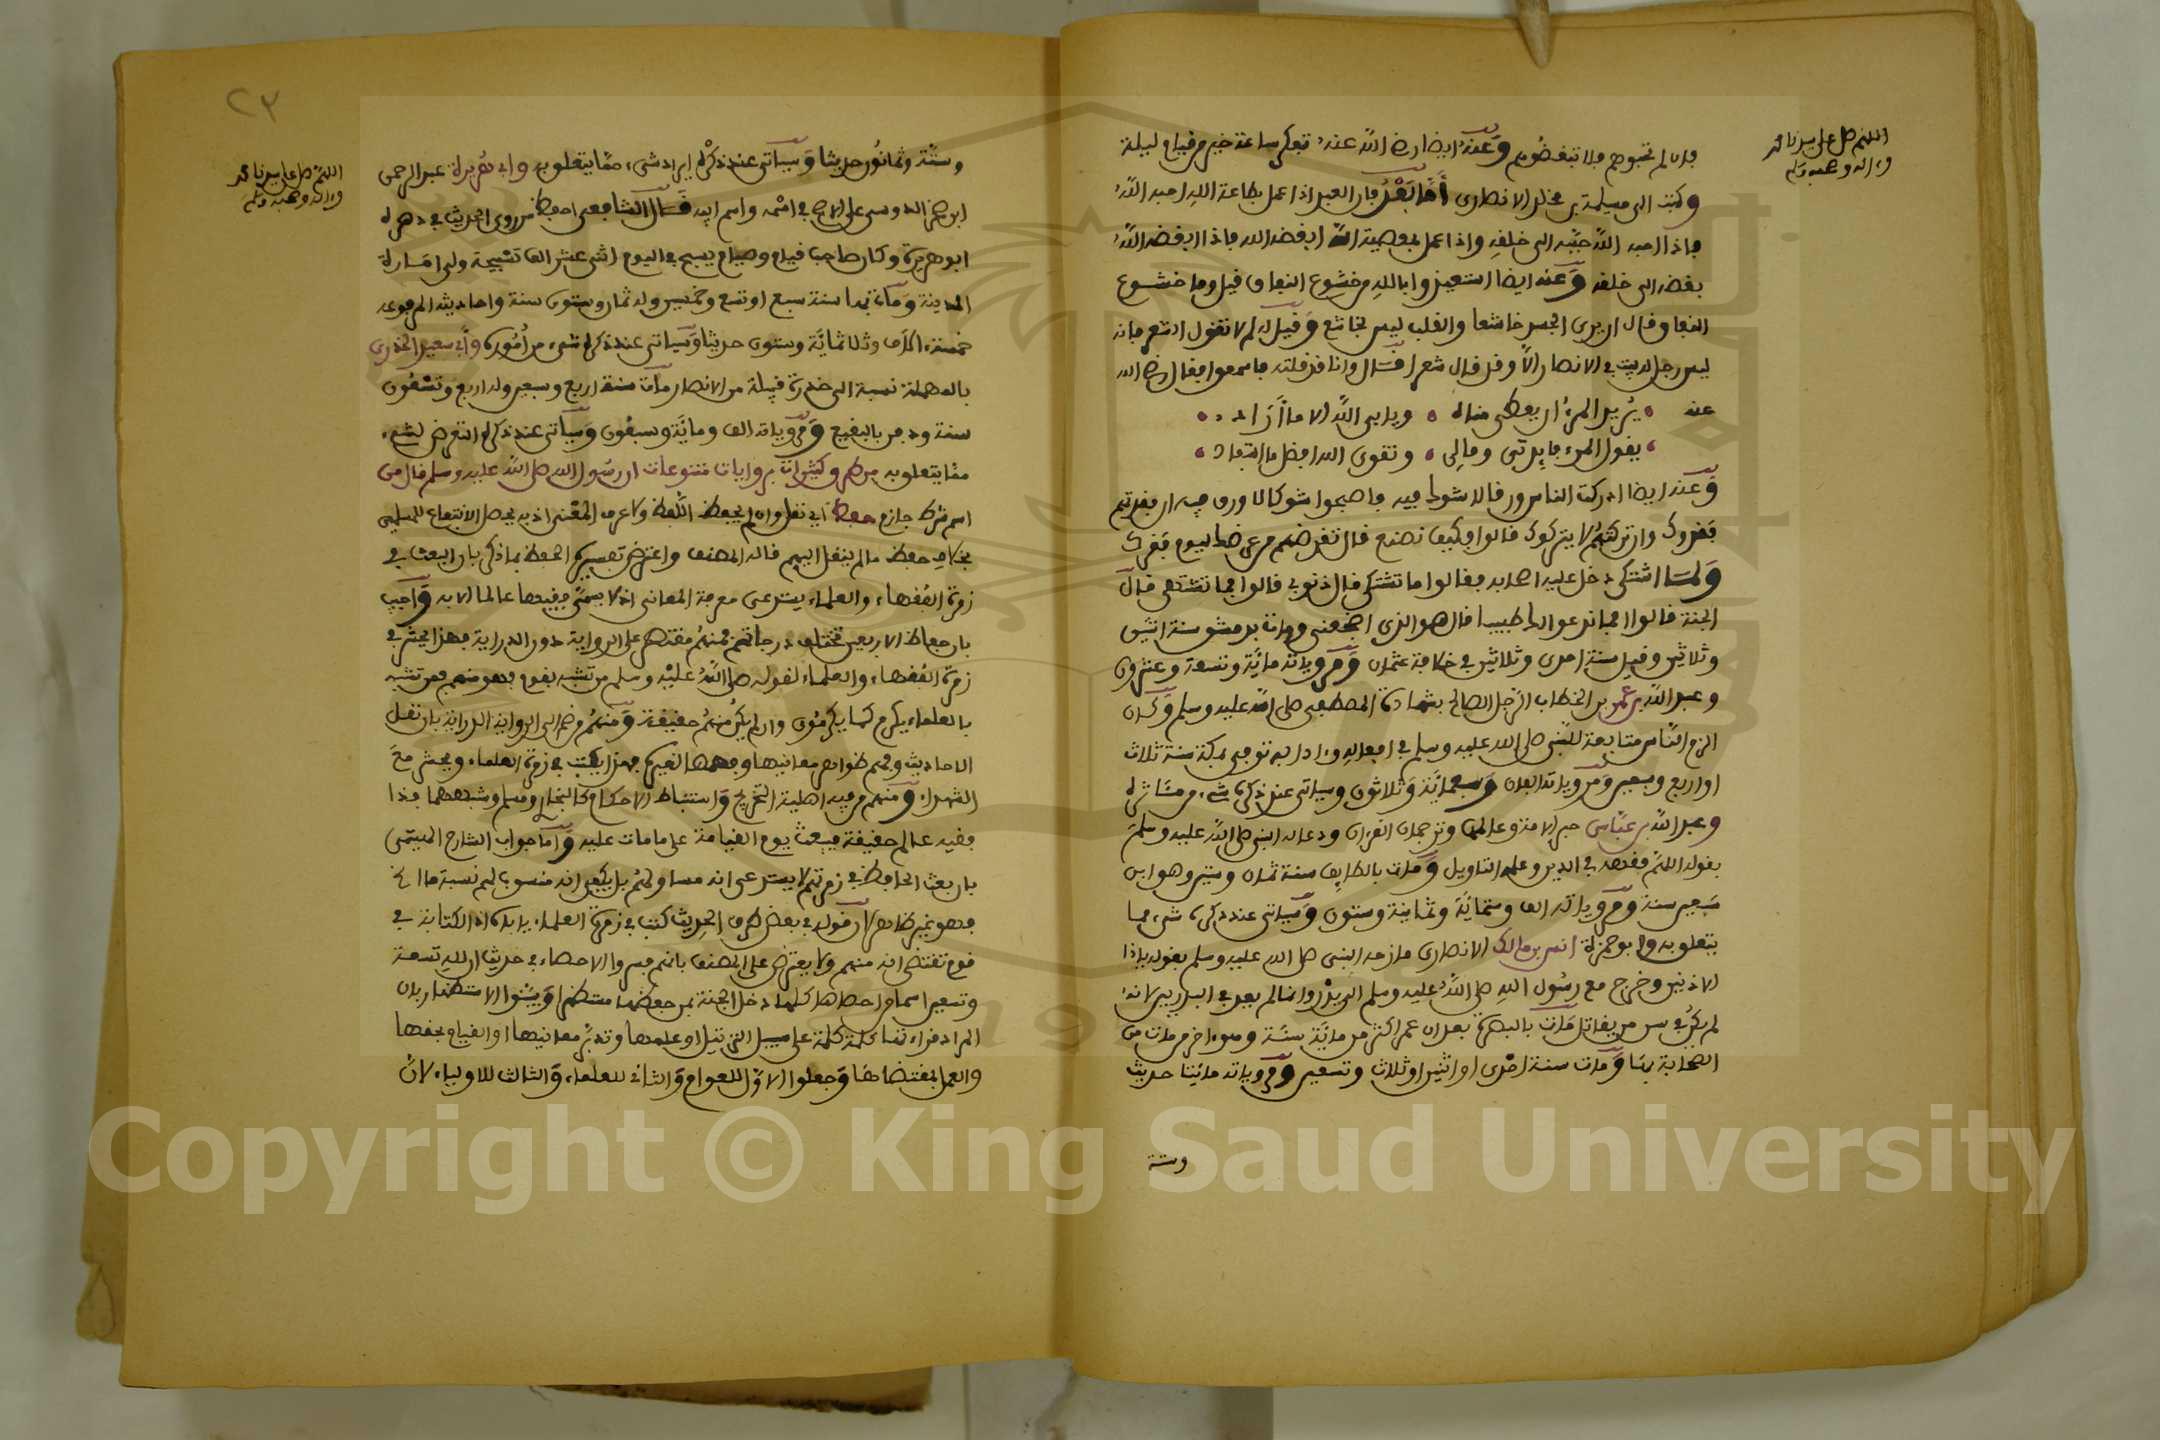 اللهم صل على سيدنا محمد
وءاله وصحبه وسلم
فان لم تحبوهم فلا تبغضوهم وعنه ايضا رضي الله عنه تفكر ساعة خير من قيام ليلة
وكتب الى مسلمة بن مخلد الانصاري أما بعد فان العبد اذا عمل بطاعة الله احبه الله
فاذا احبه الله حببه الى خلقه واذا عمل بمعصية الله ابغضه الله فاذا ابغضه الله
بغضه الى خلقه وعنه ايضا استعيذوا بالله من خشوع النفاق قيل وما خشوع
النفاق قال ان يرى الجسد خاشعا والقلب ليس بخاشع وقيل له لم لا تقول الشعر فانه
ليس رجل له بيت في الانصار الا وقد قال شعرا قال وانا قد قلته فاسمعوا فقال رضي الله
عنه يريد المرء ان يعطى مناه ويابى الله الا ما أرادا
يقول المرء فايدتي ومالي وتقوى الله افضل ما استفادا
وعنه ايضا ادركت الناس ورقا لا شوك فيه فاصبحوا شوكا لا ورق فيه ان نقدتهم
نقدوك وان تركتهم لا يتركوك قالوا وكيف نصنع قال تقرضهم من عرضك ليوم فقرك
ولما اشتكى دخل عليه اصحابه فقالوا ما تشتكي قال ذنوبي قالوا فما تشتهي قال
الجنة قالوا افما ندعوا لك طبيبا قال هو الذي اضجعني وفاته بدمشق سنة اثنين
وثلاثين وقيل سنة احدى وثلاثين في خلافة عثمان ومروياته مائة وتسعة وعشرون
وعبد الله بن عمر بن الخطاب الرجل الصالح بشهادة المصطفى صلى الله عليه وسلم وكان
الزم الناس متابعة للنبي صلى الله عليه وسلم في افعاله وءادابه توفي بمكة سنة ثلاث
او اربع وسبعين ومروياته الفان وستمائة وثلاثون وسياتي عند ذكره شيء من مئاثره
وعبد الله بن عباس حبر الامة وعالمها وترجمان القرءان ودعا له النبي صلى الله عليه وسلم
بقوله اللهم فقهه في الدين وعلمه التاويل ومات بالطايف سنة ثمان وستين وهو ابن
سبعين سنة ومروياته الف وستمائة وثمانية وستون وسياتي عند ذكره شيء مما
يتعلق به وابو حمزة انس بن مالك الانصاري ملازمه النبي صلى الله عليه وسلم بقوله ياذا
الاذنين وخرج مع رسول الله صلى الله عليه وسلم الى بدر وانما لم يعد في البدريين لانه
لم يكن في سن من يقاتل مات بالبصرة بعد ان عمر اكثر من مائة سنة وهو ءاخر من مات من
الصحابة بها ومات سنة احدى او اثنين او ثلاث وتسعين ومروياته مائتا حديث
وستة
٢٣
اللهم صل على سيدنا محمد
وءاله وصحبه وسلم
وستة وثمانون حديثا وسياتي عند ذكره ايراد شيء مما يتعلق به وابي هريرة عبد الرحمن
ابن صخر الدوسي على الاصح في اسمه واسم ابيه قال الشافعي احفظ من روى الحديث في دهره
ابو هريرة وكان صاحب قيام وصيام يسبح في اليوم اثنى عشر الف تسبيحة ولي امارة
المدينة ومات بها سنة سبع او تسع وخمسين وله ثمان وستون سنة واحاديثه المرفوعة
خمسة ءالاف وثلاثمائة وستون حديثا وسياتي عند ذكره شيء من أموره وأبي سعيد الخدري
بالمهملة نسبة الى خدرة قبيلة من الانصار مات سنة اربع وسبعين وله اربع وتسعون
سنة ودفن بالبقيع ومروياته الف ومائة وسبعون وسياتي عند ذكره التعرض لشيء
مما يتعلق به من طرق كثيرات بروايات متنوعات ان رسول الله صلى الله عليه وسلم قال من
اسم شرط جازم حفظ اي نقل وان لم يحفظ اللفظ ولا عرف المعنى اذ به يحصل الانتفاع للمسلمين
بخلاف حفظ ما لم ينقل اليهم قاله المصنف واعترض تفسيره الحفظ بما ذكر بان البعث في
زمرة الفقهاء والعلماء يستدعى معرفة المعاني اذ لا يسمى فقيها عالما الا به وأجيب
بان حفاظ الاربعين تختلف درجاتهم فمنهم مقتصر على الرواية دون الدراية فهذا يحشر في
زمرة الفقهاء والعلماء لقوله صلى الله عليه وسلم من تشبه بقوم فهو منهم فمن تشبه
بالعلماء يكرم كما يكرمون وان لم يكن منهم حقيقة ومنهم من ضم الى الرواية الدراية بان نقل
الاحاديث وفهم ظواهر معانيها وفهمها لغيره فهذا يكتب في زمرة العلماء ويحشر مع
الشهداء ومنهم من فيه اهلية التخريج واستنباط الاحكام كالبخاري ومسلم وشبههما فهذا
فقيه عالم حقيقة يبعث يوم القيامة على ما مات عليه وأما جواب الشارح الهيتمي
بان بعث الحافظ في زمرتهم لا يستدعى انه مساو لهم بل يكفي انه منسوب لهم نسبة ما الخ
فهو غير ظاهر لان قوله في بعض طرق الحديث كتب في زمرة العلماء ياباه اذ الكتابة في
قوم تقتضي انه منهم ولا يعترض على المصنف بانهم فسروا الاحصاء في حديث ان لله تسعة
وتسعين اسما من احصاها كلها دخل الجنة بمن حفظها مستظهرا وبينوا الاستظهار بان
المراد قراءتها كلمة كلمة على سبيل الترتيل او علمها وتدبر معانيها او القيام بحقها
والعمل بمقتضاها وجعلوا الاول للعوام والثاني للعلماء والثالث للاولياء لان
Copyright © King Saud University